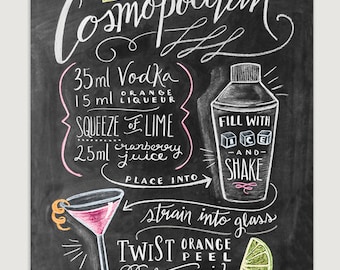 Cosmopolitan
35ml Vodka
15ml ORANGE LIQUEUR
SQUEEZE OF LIME
25ml cranberry juice
PLACE INTO
FILL WITH
ICE
AND
SHAKE
strain into glass
TWIST ORANGE PEEL